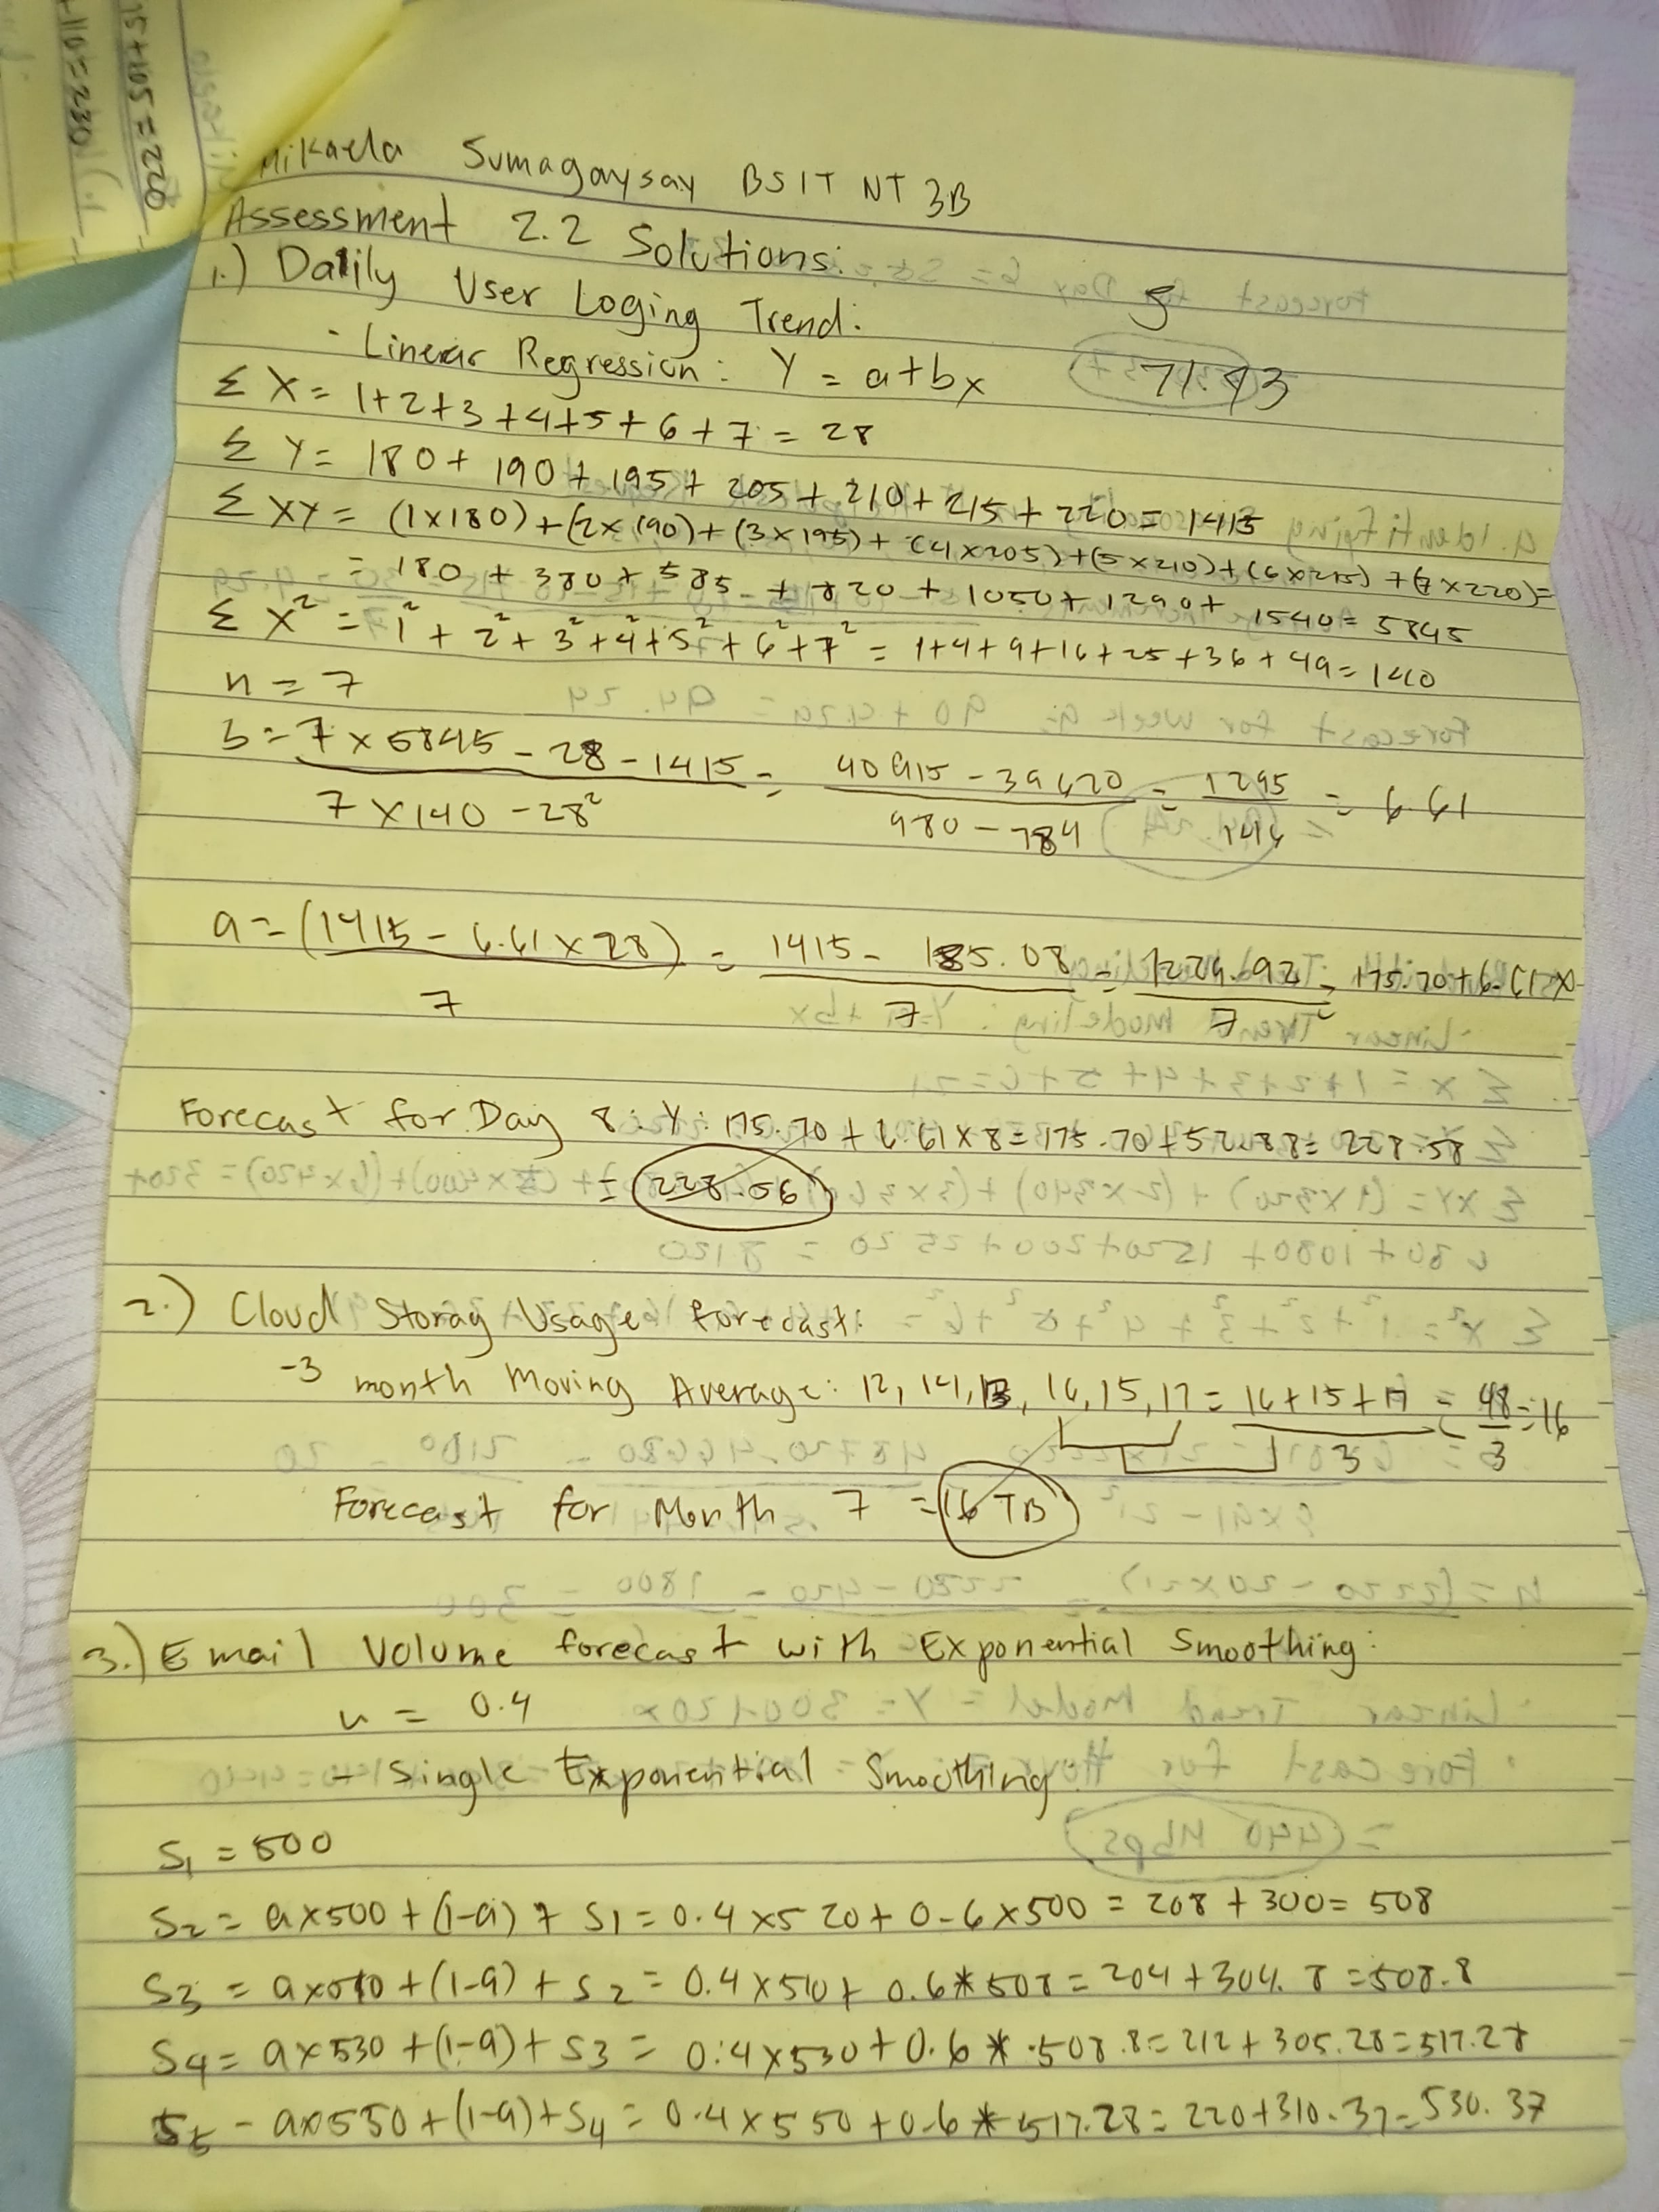 Mikaela Sumagaysay BSIT NT 3B
Assessment 2.2 Solutions:
1.) Daily User Loging Trend:
5
- Linear Regression: Y = a+bx
71.43
Σ X = 1+2+3+4+5+6+7 = 28
Σ Y = 180+190+195+205+210+215+220 = 1415
Σ XY = (1x180)+(2x190)+(3x195)+(4x205)+(5x210)+(6x215)+(7x220)=
= 180+380+585+820+1050+1290+1540=5845
Σ X² = 1²+2²+3²+4²+5²+6²+7² = 1+4+9+16+25+36+49=140
n = 7
b = 7x5845-28-1415 / 7x140-28² = 40915-39620 / 980-784 = 1295 / 146 = 6.61
a = (1415-6.61x28) / 7 = 1415-185.08 / 7 = 1229.92 / 7 = 175.70+6.61x
Forecast for Day 8: Y: 175.70+6.61x8=175.70+52.88=228.58
= 228.56
2.) Cloud Storag Usage forecast:
-3 month Moving Average: 12, 14, 13, 16, 15, 17 = 16+15+17 / 3 = 48 / 3 = 16
Forecast for Month 7 = 16 TB
3.) Email Volume forecast with Exponential Smoothing:
u = 0.4
- Single Exponential Smoothing:
S1 = 500
S2 = ax500+(1-a)+S1=0.4x520+0.6x500=208+300=508
S3 = ax510+(1-a)+S2=0.4x510+0.6*508=204+304.8=508.8
S4= ax530+(1-a)+S3= 0.4x530+0.6*.508.8=212+305.28=517.28
S5 - ax550+(1-a)+S4=0.4x550+0.6*517.28=220+310.37=530.37
15+105=220
+110=230